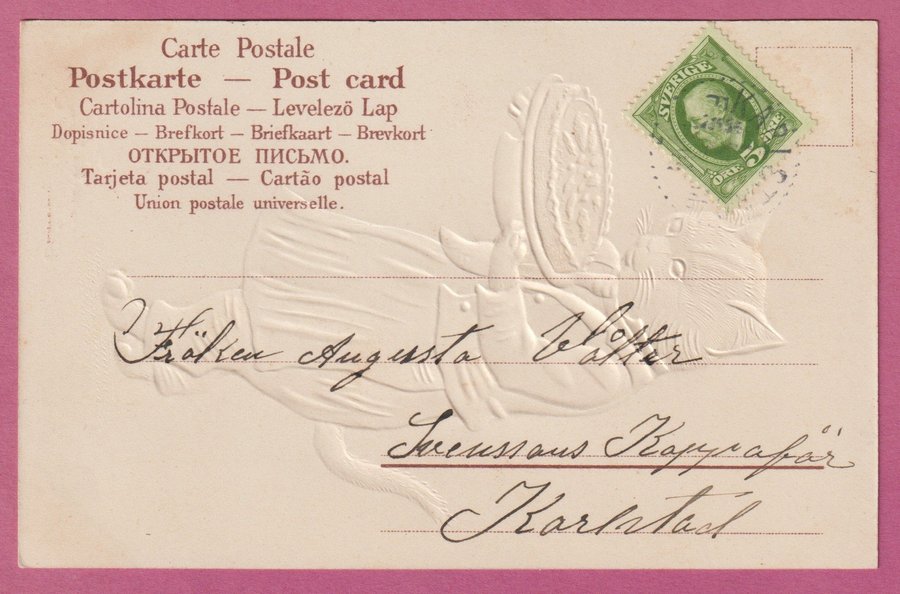 Carte Postale
Postkarte — Post card
Cartolina Postale — Levelező Lap
Dopisnice — Brefkort — Briefkaart — Brevkort
ОТКРЫТОЕ ПИСЬМО.
Tarjeta postal — Cartão postal
Union postale universelle.
SVERIGE
5 ÖRE
ÖRE
Fröken Augusta
Svenssons
Karlstad